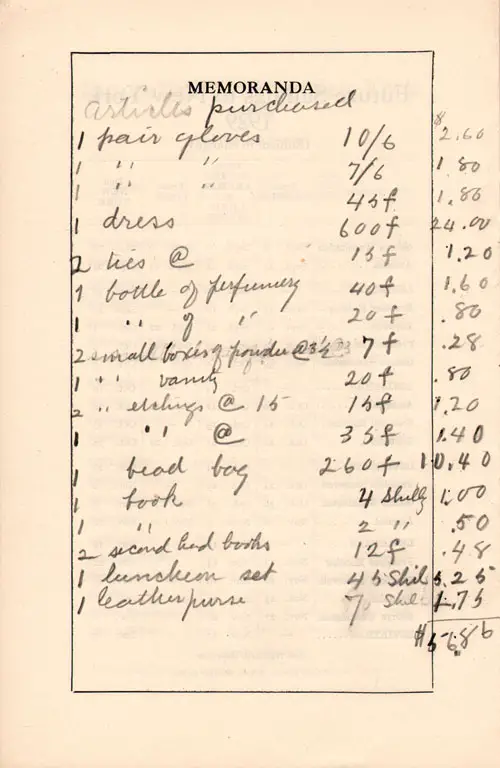 MEMORANDA
articles purchased
1 pair gloves 10/6 $2.60
1 " " 7/6 1.80
1 " " 45f 1.80
1 dress 600f 24.00
2 ties @ 15f 1.20
1 bottle of perfumery 40f 1.60
1 " of " 20f .80
2 small boxes of powder @ 3½ 7f .28
1 " vanity 20f .80
2 " etchings @ 15 15f 1.20
1 " @ 35f 1.40
1 bead bag 260f 10.40
1 book 4 Shills 1.00
1 " 2 " .50
2 second hand books 12f .48
1 luncheon set 45 Shil 5.25
1 leather purse 7 Shil 1.75